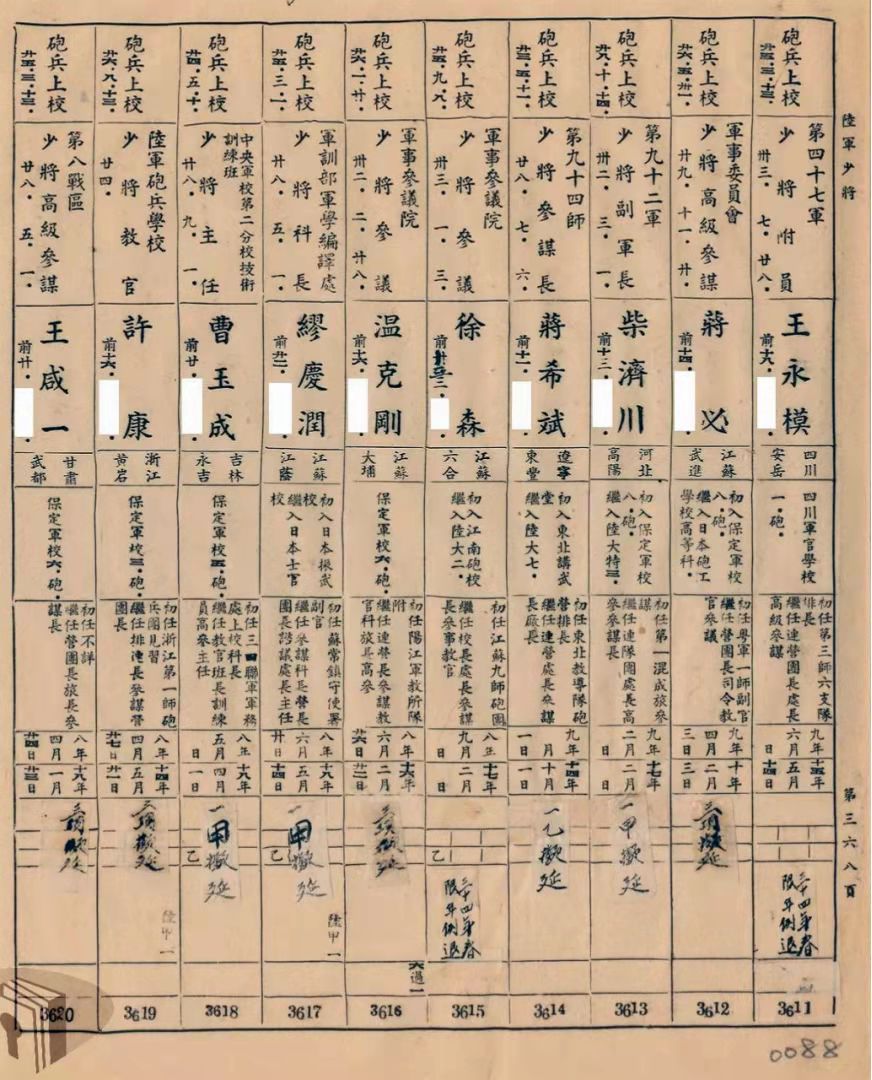 陸軍少將
第三六八頁
砲兵上校
廿五.三.十三.
第四十七軍
少將附員
卅三.七.廿八.
王永模
前十六.
四川
安岳
四川軍官學校
一.砲.
初任第三師六支隊
排長
繼任連營團長處長
高級參謀
九年
六月
日
十五年
五月
十四日
三十四年春
限年例退
3611
砲兵上校
軍事委員會
少將高級參謀
廿九.十一.廿.
蔣必
前十四.
江蘇
武進
初入保定軍校
八.砲.
繼入日本砲工
學校高等科.
初任粵軍一師副官
繼任營團長司令教
官參議
九年
四月
三日
十年
二月
三日
3612
砲兵上校
廿八.十.十四.
第九十二軍
少將副軍長
卅二.三.一.
柴濟川
前十三.
河北
高陽
初入保定軍校
八.砲.
繼入陸大特三.
初任第一混成旅參
謀
繼任連隊團處長高
參參謀長
九年
二月
日
十七年
二月
日
一甲撤延
3613
砲兵上校
廿三.五.十一.
第九十四師
少將參謀長
廿八.七.六.
蔣希斌
前十一.
遼寧
東豐
初入東北講武
堂
繼入陸大七.
初任東北教導隊砲
營排長
繼任連營處長參謀
長廠長
九年
月
一日
十四年
十月
一日
一乙撤延
3614
砲兵上校
廿五.九.八.
軍事參議院
少將參議
卅三.一.三.
徐森
江蘇
六合
初入江南砲校
繼入陸大二.
初任江蘇九師砲團
繼任校長處長參謀
長參事教官
八年
九月
日
十七年
二月
日
乙
三十四年春
限年例退
3615
砲兵上校
廿六.一.廿.
軍事參議院
少將參議
卅二.二.廿八.
温克剛
前十六.
江蘇
大埔
保定軍校六.砲.
初任陽江軍教所隊
附
繼任連營長參謀教
官科旅長高參
八年
六月
廿六日
十六年
二月
廿一日
大過一
3616
砲兵上校
廿五.三.二.
軍訓部軍學編譯處
少將科長
廿八.五.一.
繆慶潤
前廿一.
江蘇
江蔭
初入日本振武
校
繼入日本士官
校
初任蘇常鎮守使署
副官
繼任參謀科長營長
團長諮議處長主任
八年
六月
廿日
十八年
五月
十四日
一甲撤延
乙
陸甲一
3617
砲兵上校
廿四.五.十.
中央軍校第二分校技術
訓練班
少將主任
廿八.九.一.
曹玉成
前廿.
吉林
永吉
保定軍校五.砲.
初任三四聯軍軍務
處上校科長
繼任教官班長訓練
員高參主任
八年
五月
日
十八年
四月
一日
一甲撤延
乙
3618
砲兵上校
廿六.八.十三.
陸軍砲兵學校
少將教官
廿四.
許康
前十六.
浙江
黃岩
保定軍校三.砲.
初任浙江第一師砲
兵團見習
繼任排連長參謀營
團長
八年
四月
廿七日
十四年
五月
廿一日
陸甲一
3619
砲兵上校
廿五.三.十三.
第八戰區
少將高級參謀
廿八.五.一.
王咸一
前廿.
甘肅
武都
保定軍校六.砲.
初任不詳
繼任營團長旅長參
謀長
八年
四月
廿四日
十八年
一月
廿三日
3620
0088